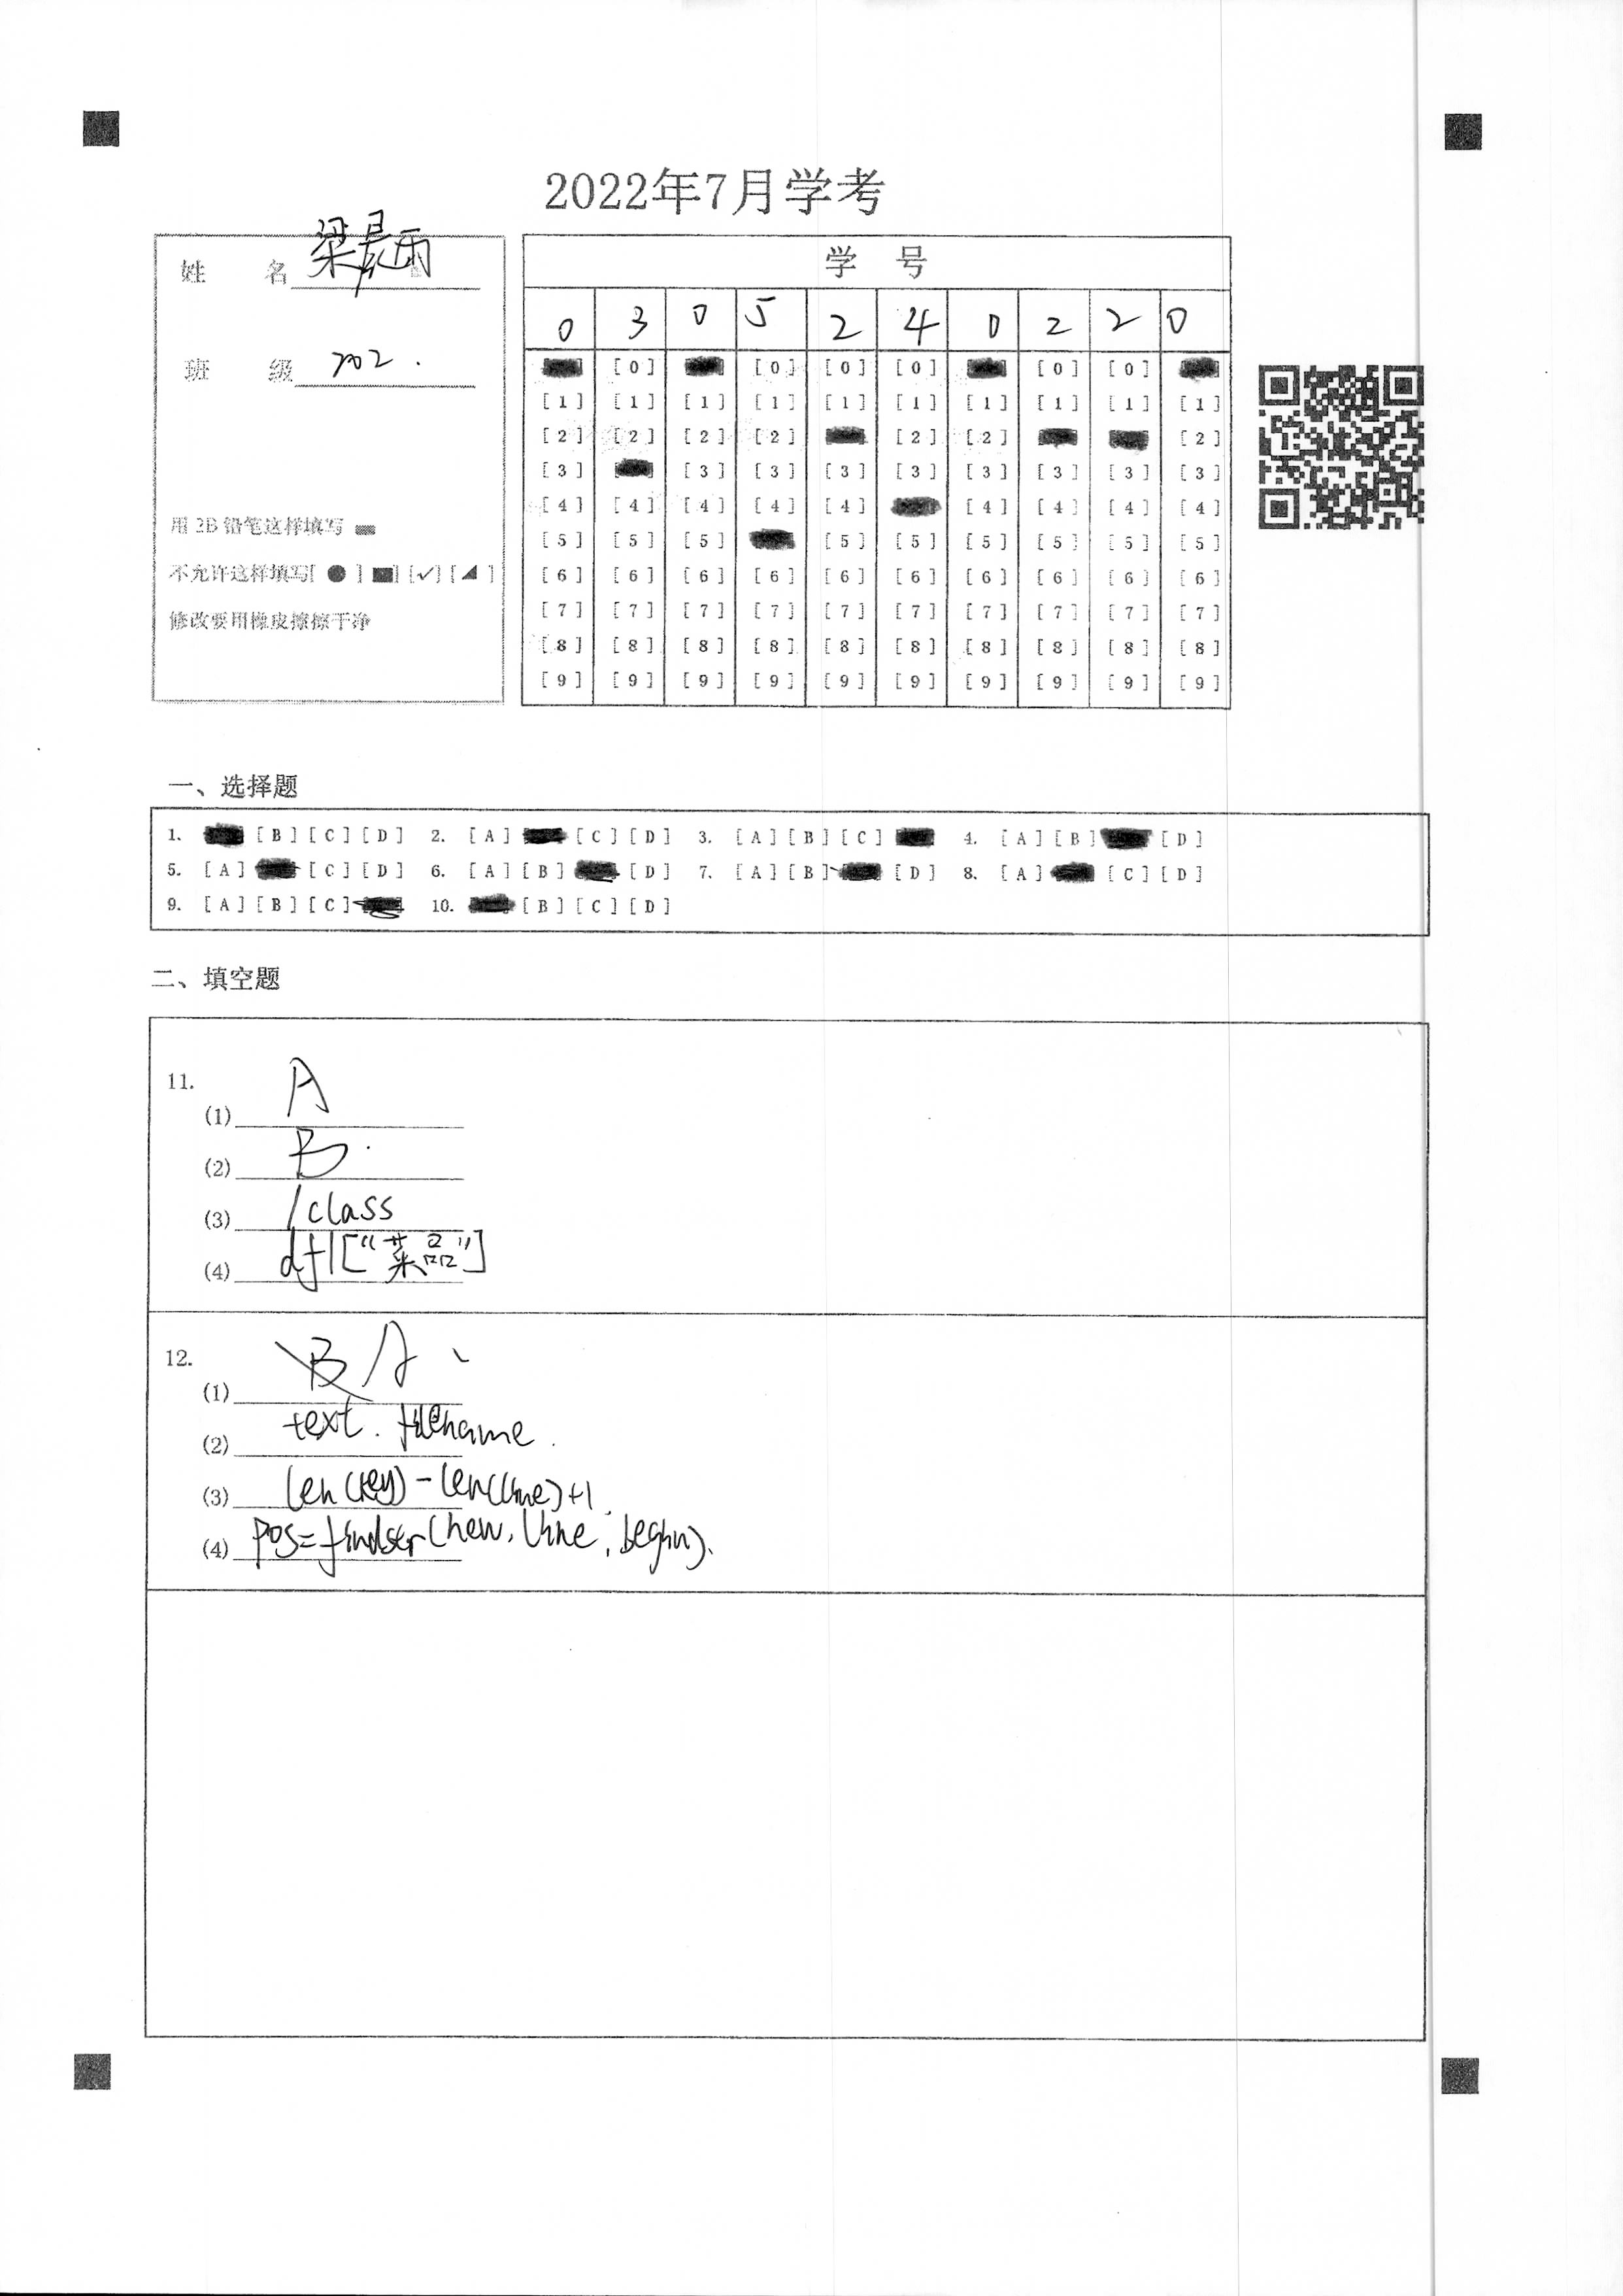 2022年7月学考
姓 名 梁晨雨
班 级 702.
用2B铅笔这样填写
不允许这样填写[ ● ] [■] [✓] [◢ ]
修改要用橡皮擦擦干净
学 号
0 3 0 5 2 4 0 2 2 0
[0] [0] [0] [0] [0] [0]
[1] [1] [1] [1] [1] [1] [1] [1] [1] [1]
[2] [2] [2] [2] [2] [2] [2]
[3] [3] [3] [3] [3] [3] [3] [3] [3]
[4] [4] [4] [4] [4] [4] [4] [4] [4]
[5] [5] [5] [5] [5] [5] [5] [5] [5]
[6] [6] [6] [6] [6] [6] [6] [6] [6] [6]
[7] [7] [7] [7] [7] [7] [7] [7] [7] [7]
[8] [8] [8] [8] [8] [8] [8] [8] [8] [8]
[9] [9] [9] [9] [9] [9] [9] [9] [9] [9]
一、选择题
1. [B] [C] [D] 2. [A] [C] [D] 3. [A] [B] [C] 4. [A] [B] [D]
5. [A] [C] [D] 6. [A] [B] [D] 7. [A] [B] [D] 8. [A] [C] [D]
9. [A] [B] [C] 10. [B] [C] [D]
二、填空题
11.
(1) A
(2) B.
(3) /class
(4) df1["菜品"]
12.
(1) B A
(2) text. filename.
(3) len(key)-len(line)+1
(4) pos=findstr(new,line,begin).